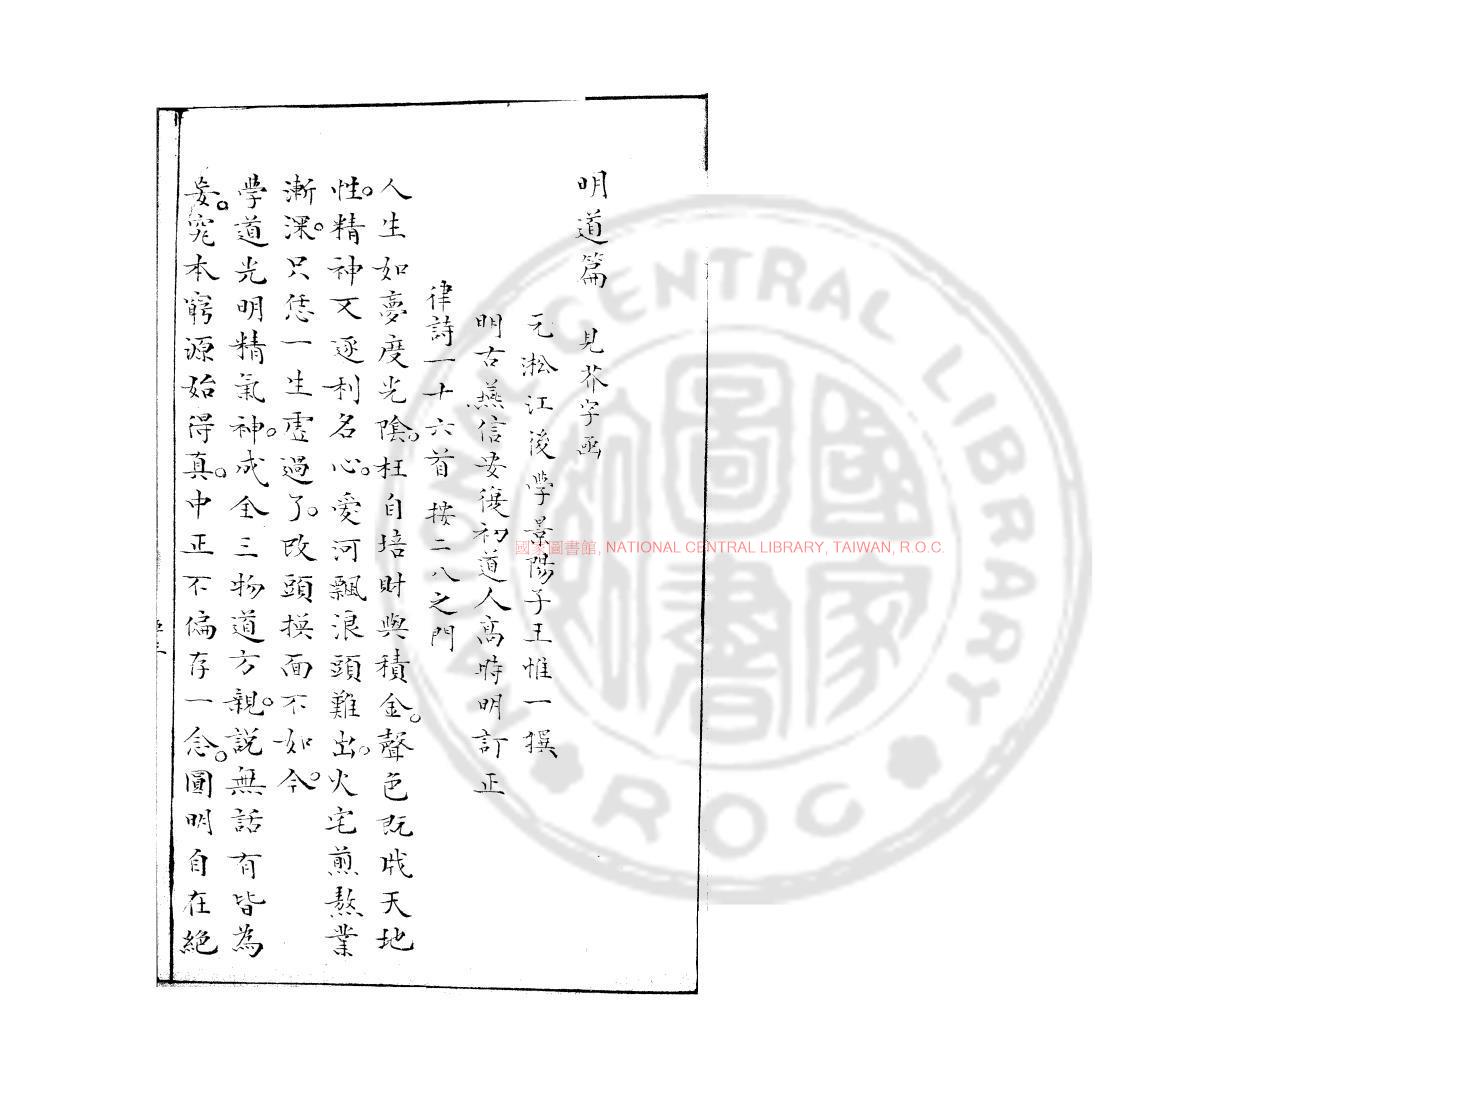 明道篇 見芥字函
元淞江後學景陽子王惟一撰
明古燕信安復初道人高時明訂正
律詩一十六首 按二八之門
人生如夢度光陰。枉自培財與積金。聲色既戕天地
性。精神又逐利名心。愛河飄浪頭難出。火宅煎熬業
漸深。只恁一生虛過了。改頭換面不如今。
學道光明精氣神。神成全三物道方親。說無話有皆為
妄。究本窮源始得真。中正不偏存一念。圓明自在絕
國家圖書館, NATIONAL CENTRAL LIBRARY, TAIWAN, R.O.C.
NATIONAL CENTRAL LIBRARY
ROC
國家圖書館